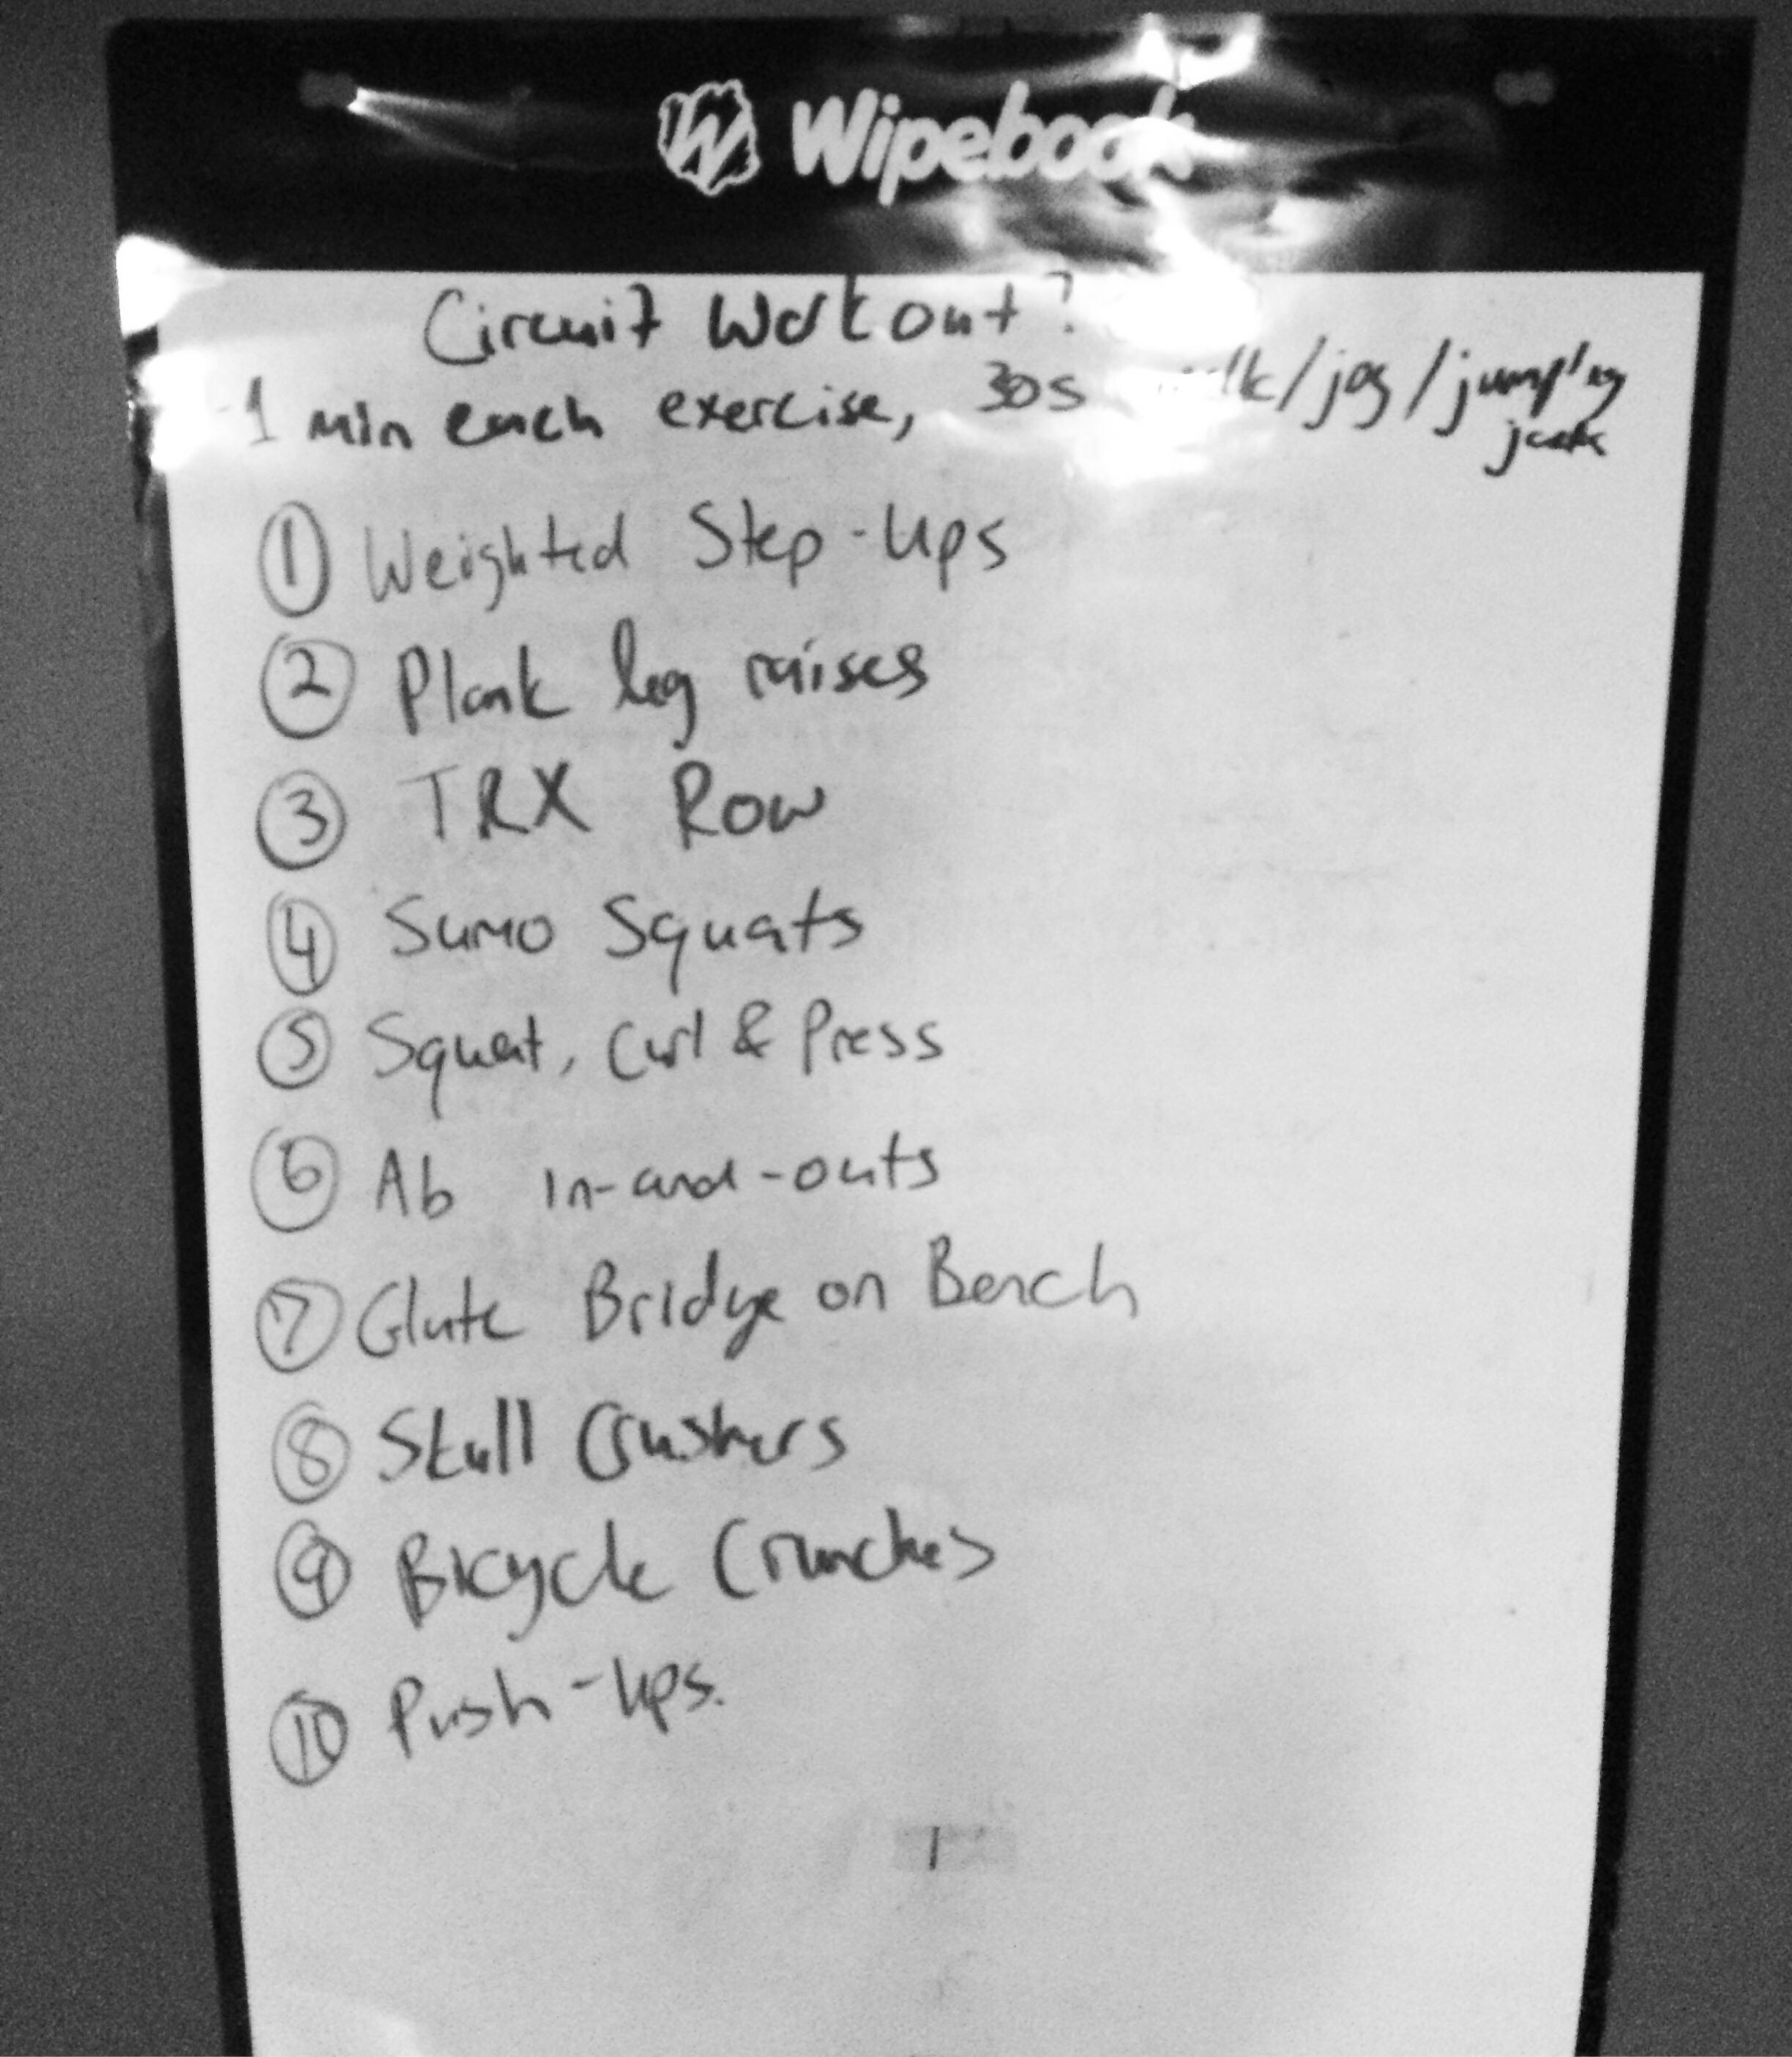 Wipebook
Circuit Workout?
-1 min each exercise, 30s walk/jog/jumping
jacks
① Weighted Step-Ups
② Plank leg raises
③ TRX Row
④ Sumo Squats
⑤ Squat, Curl & Press
⑥ Ab in-and-outs
⑦ Glute Bridge on Bench
⑧ Skull Crushers
⑨ Bicycle Crunches
⑩ Push-Ups.